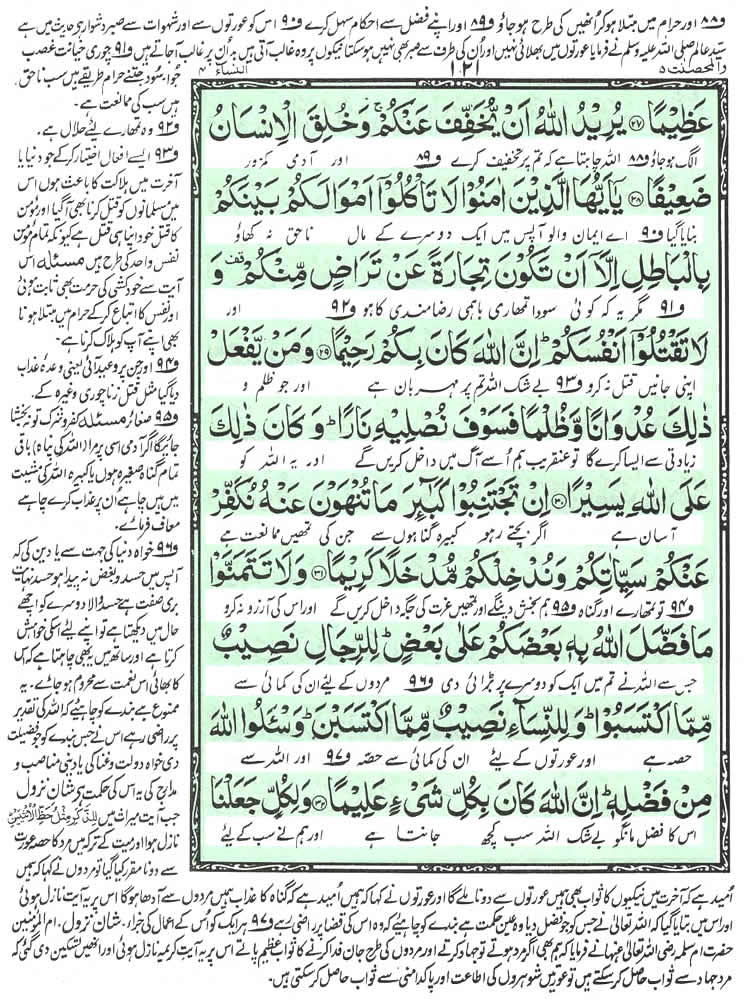 و۸۸ اور حرام میں مبتلا ہو کر انھیں کی طرح ہو جاؤ و۸۹ اور اپنے فضل سے احکام سہل کرے و۹۰ اس کو عورتوں سے اور شہوات سے صبر دشوار ہے حدیث میں ہے
سیّد عالم صلی اللہ علیہ وسلم نے فرمایا عورتوں میں بھلائی نہیں اور اُن کی طرف سے صبر بھی نہیں ہو سکتا نیکوں پر وہ غالب آتی ہیں بد اُن پر غالب آجاتے ہیں و۹۱ چوری خیانت غصب
والمحصنت ۵
۱۲۱
النساء ۴
جوا سُود جتنے حرام طریقے ہیں سب ناحق
ہیں سب کی ممانعت ہے۔
و۹۲ وہ تمھارے لئے حلال ہے۔
و۹۳ ایسے افعال اختیار کر کے جو دنیا یا
آخرت میں ہلاکت کا باعث ہوں اس
میں مسلمانوں کو قتل کرنا بھی آ گیا اور مومن
کا قتل خود اپنا ہی قتل ہے کیونکہ تمام مومن
نفس واحد کی طرح ہیں مسئلہ اس
آیت سے خود کشی کی حرمت بھی ثابت ہوئی
اور نفس کا اتباع کر کے حرام میں مبتلا ہونا
بھی اپنے آپ کو ہلاک کرنا ہے۔
و۹۴ اور جن پر وعید آئی یعنی وعدہ عذاب
دیا گیا مثل قتل زنا چوری وغیرہ کے۔
و۹۵ صغائر مسئلہ کفر و شرک تو نہ بخشا
جائیگا اگر آدمی اسی پر مرا (اللہ کی پناہ) باقی
تمام گناہ صغیرہ ہوں یا کبیرہ اللہ کی مشیت
میں ہیں چاہے ان پر عذاب کرے چاہے
معاف فرمائے۔
و۹۶ خواہ دنیا کی جہت سے یا دین کی کہ
آپس میں حسد و بغض نہ پیدا ہو حسد نہایت
بری صفت ہے حسد والا دوسرے کو اچھے
حال میں دیکھتا ہے تو اپنے لیے اسکی خواہش
کرتا ہے اور ساتھ میں یہ بھی چاہتا ہے کہ اس
کا بھائی اس نعمت سے محروم ہو جائے۔ یہ
ممنوع ہے بندے کو چاہئے کہ اللہ کی تقدیر
پر راضی رہے اس نے جس بندے کو جو فضیلت
دی خواہ دولت و غنا کی یا دینی مناصب و
مدارج کی یہ اس کی حکمت ہے شان نزول
جب آیت میراث میں لِلذَّكَرِ مِثْلُ حَظِّ الْاُنْثَيَيْنِ
نازل ہوا اور میت کے ترکہ میں مرد کا حصہ عورت
سے دونا مقرر کیا گیا تو مردوں نے کہا کہ ہمیں
عَظِيْمًا ۝۲۷ يُرِيْدُ اللّٰهُ اَنْ يُّخَفِّفَ عَنْكُمْ ۚ وَخُلِقَ الْاِنْسَانُ
الگ ہو جاؤ و۸۸ اللہ چاہتا ہے کہ تم پر تخفیف کرے و۸۹ اور آدمی کمزور
ضَعِيْفًا ۝۲۸ يٰۤاَيُّهَا الَّذِيْنَ اٰمَنُوْا لَا تَاْكُلُوْۤا اَمْوَالَكُمْ بَيْنَكُمْ
بنایا گیا و۹۰ اے ایمان والو آپس میں ایک دوسرے کے مال ناحق نہ کھاؤ
بِالْبَاطِلِ اِلَّاۤ اَنْ تَكُوْنَ تِجَارَةً عَنْ تَرَاضٍ مِّنْكُمْ ۟ وَ
و۹۱ مگر یہ کہ کوئی سودا تمھاری باہمی رضامندی کا ہو و۹۲ اور
لَا تَقْتُلُوْۤا اَنْفُسَكُمْ ؕ اِنَّ اللّٰهَ كَانَ بِكُمْ رَحِيْمًا ۝۲۹ وَمَنْ يَّفْعَلْ
اپنی جانیں قتل نہ کرو و۹۳ بے شک اللہ تم پر مہربان ہے اور جو ظلم و
ذٰلِكَ عُدْوَانًا وَّظُلْمًا فَسَوْفَ نُصْلِيْهِ نَارًا ؕ وَكَانَ ذٰلِكَ
زیادتی سے ایسا کرے گا تو عنقریب ہم اُسے آگ میں داخل کریں گے اور یہ اللہ کو
عَلَى اللّٰهِ يَسِيْرًا ۝۳۰ اِنْ تَجْتَنِبُوْا كَبَآئِرَ مَا تُنْهَوْنَ عَنْهُ نُكَفِّرْ
آسان ہے اگر بچتے رہو کبیرہ گناہوں سے جن کی تمھیں ممانعت ہے
عَنْكُمْ سَيِّاٰتِكُمْ وَنُدْخِلْكُمْ مُّدْخَلًا كَرِيْمًا ۝۳۱ وَلَا تَتَمَنَّوْا
و۹۴ تو تمھارے اور گناہ و۹۵ ہم بخش دینگے اور تمھیں عزت کی جگہ داخل کریں گے اور اس کی آرزو نہ کرو
مَا فَضَّلَ اللّٰهُ بِهٖ بَعْضَكُمْ عَلٰى بَعْضٍ ؕ لِلرِّجَالِ نَصِيْبٌ
جس سے اللہ نے تم میں ایک کو دوسرے پر بڑائی دی و۹۶ مردوں کے لئے ان کی کمائی سے
مِّمَّا اكْتَسَبُوْا ؕ وَلِلنِّسَآءِ نَصِيْبٌ مِّمَّا اكْتَسَبْنَ ؕ وَسْئَلُوا اللّٰهَ
حصہ ہے اور عورتوں کے لئے ان کی کمائی سے حصّہ و۹۷ اور اللہ سے
مِنْ فَضْلِهٖ ؕ اِنَّ اللّٰهَ كَانَ بِكُلِّ شَيْءٍ عَلِيْمًا ۝۳۲ وَلِكُلٍّ جَعَلْنَا
اس کا فضل مانگو بے شک اللہ سب کچھ جانتا ہے اور ہم نے سب کے لئے
اُمید ہے کہ آخرت میں نیکیوں کا ثواب بھی ہمیں عورتوں سے دونا ملے گا اور عورتوں نے کہا کہ ہمیں اُمید ہے کہ گناہ کا عذاب ہمیں مردوں سے آدھا ہوگا اس پر یہ آیت نازل ہوئی
اور اس میں بتایا گیا کہ اللہ تعالیٰ نے جس کو جو فضل دیا وہ عین حکمت ہے بندے کو چاہئے کہ وہ اس کی قضا پر راضی رہے و۹۷ ہر ایک کو اُس کے اعمال کی جزاء۔ شان نزول۔ ام المومنین
حضرت ام سلمہ رضی اللہ تعالیٰ عنہا نے فرمایا کہ ہم بھی اگر مرد ہوتے تو جہاد کرتے اور مردوں کی طرح جان فدا کرنے کا ثواب عظیم پاتے اس پر یہ آیت کریمہ نازل ہوئی اور انھیں تسکین دی گئی کہ
مرد جہاد سے ثواب حاصل کر سکتے ہیں تو عورتیں شوہروں کی اطاعت اور پاکدامنی سے ثواب حاصل کر سکتی ہیں۔